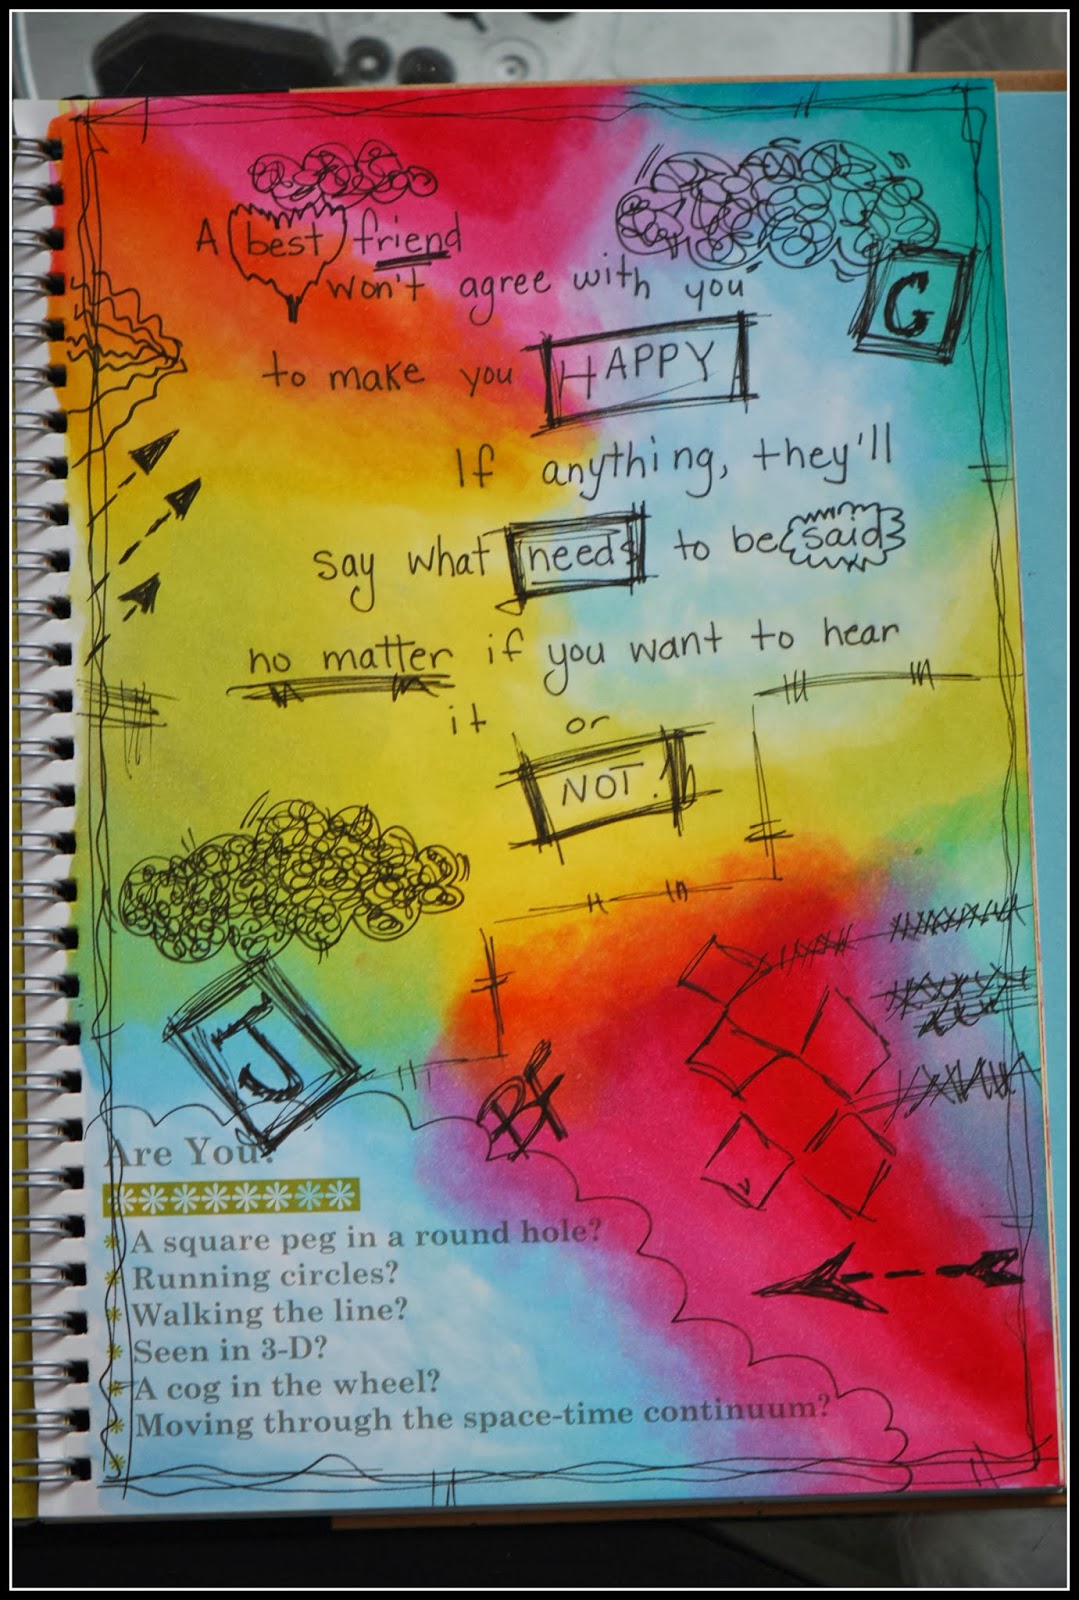 A best friend
won't agree with you
G
to make you HAPPY
If anything, they'll
say what needs to be said
no matter if you want to hear
it or
NOT.
J
BF
Are You?
A square peg in a round hole?
Running circles?
Walking the line?
Seen in 3-D?
A cog in the wheel?
Moving through the space-time continuum?